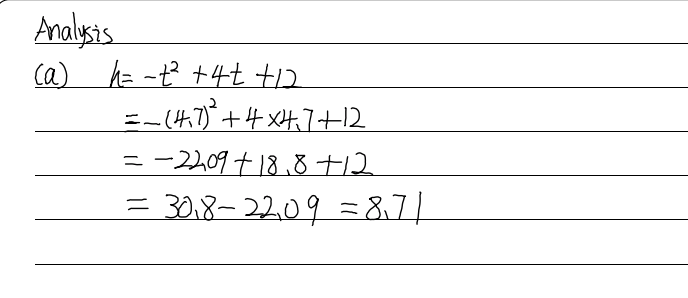 Analysis
(a) h= -t² +4t +12
= -(4.7)² + 4 ×4.7+12
= -22.09 + 18.8 +12
= 30.8 - 22.09 = 8.71